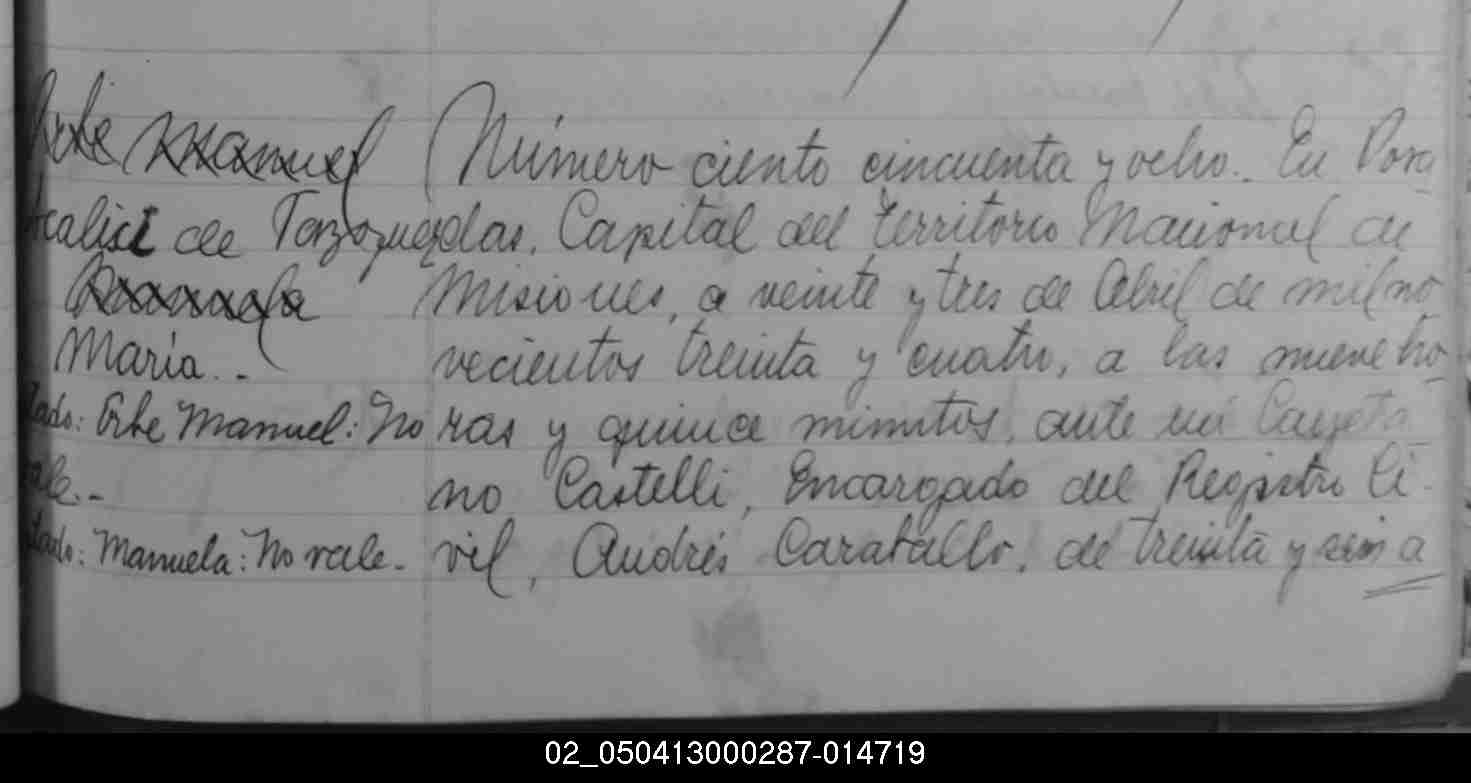 Erbe Manuel
Acalist de
Manuela
María..-
tado: Erbe Manuel: No
vale.-
tado: Manuela: No vale.-
Número ciento cincuenta y ocho.. En Posa
das, Capital del Territorio Nacional de
Misiones, a veinte y tres de Abril de mil no
vecientos treinta y cuatro, a las nueve ho
ras y quince minutos, ante mí Cayeta
no Castelli, Encargado del Registro Ci-
vil, Andrés Caraballo, de treinta y seis a
02_050413000287-014719